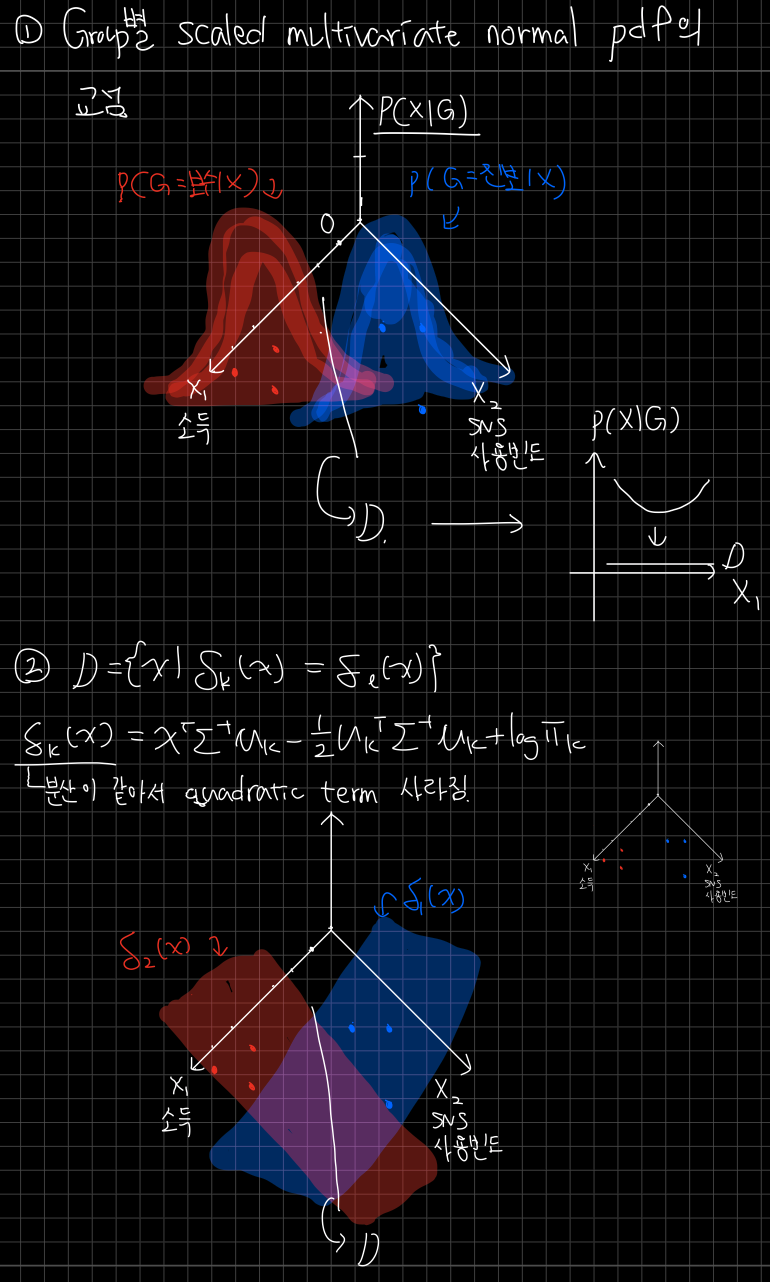 ① Group별 scaled multivariate normal pdf의
교점
P(X|G)
P(G=보수|X)
P(G=진보|X)
O
X₁
소득
X₂
SNS
사용빈도
D
P(X|G)
D
X₁
② D={x| δₖ(x) = δₗ(x)}
δₖ(x) = xᵀΣ⁻¹μₖ - ½μₖᵀΣ⁻¹μₖ + log πₖ
분산이 같아서 quadratic term 사라짐.
X₁
소득
X₂
SNS
사용빈도
δ₂(x)
δ₁(x)
X₁
소득
X₂
SNS
사용빈도
D